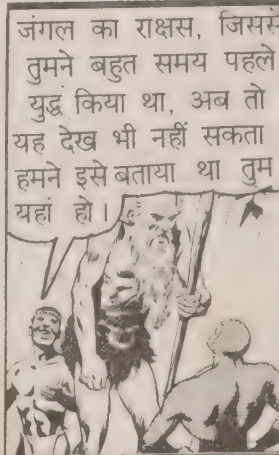 जंगल का राक्षस, जिससे
तुमने बहुत समय पहले
युद्ध किया था, अब तो
यह देख भी नहीं सकता
हमने इसे बताया था तुम
यहां हो।